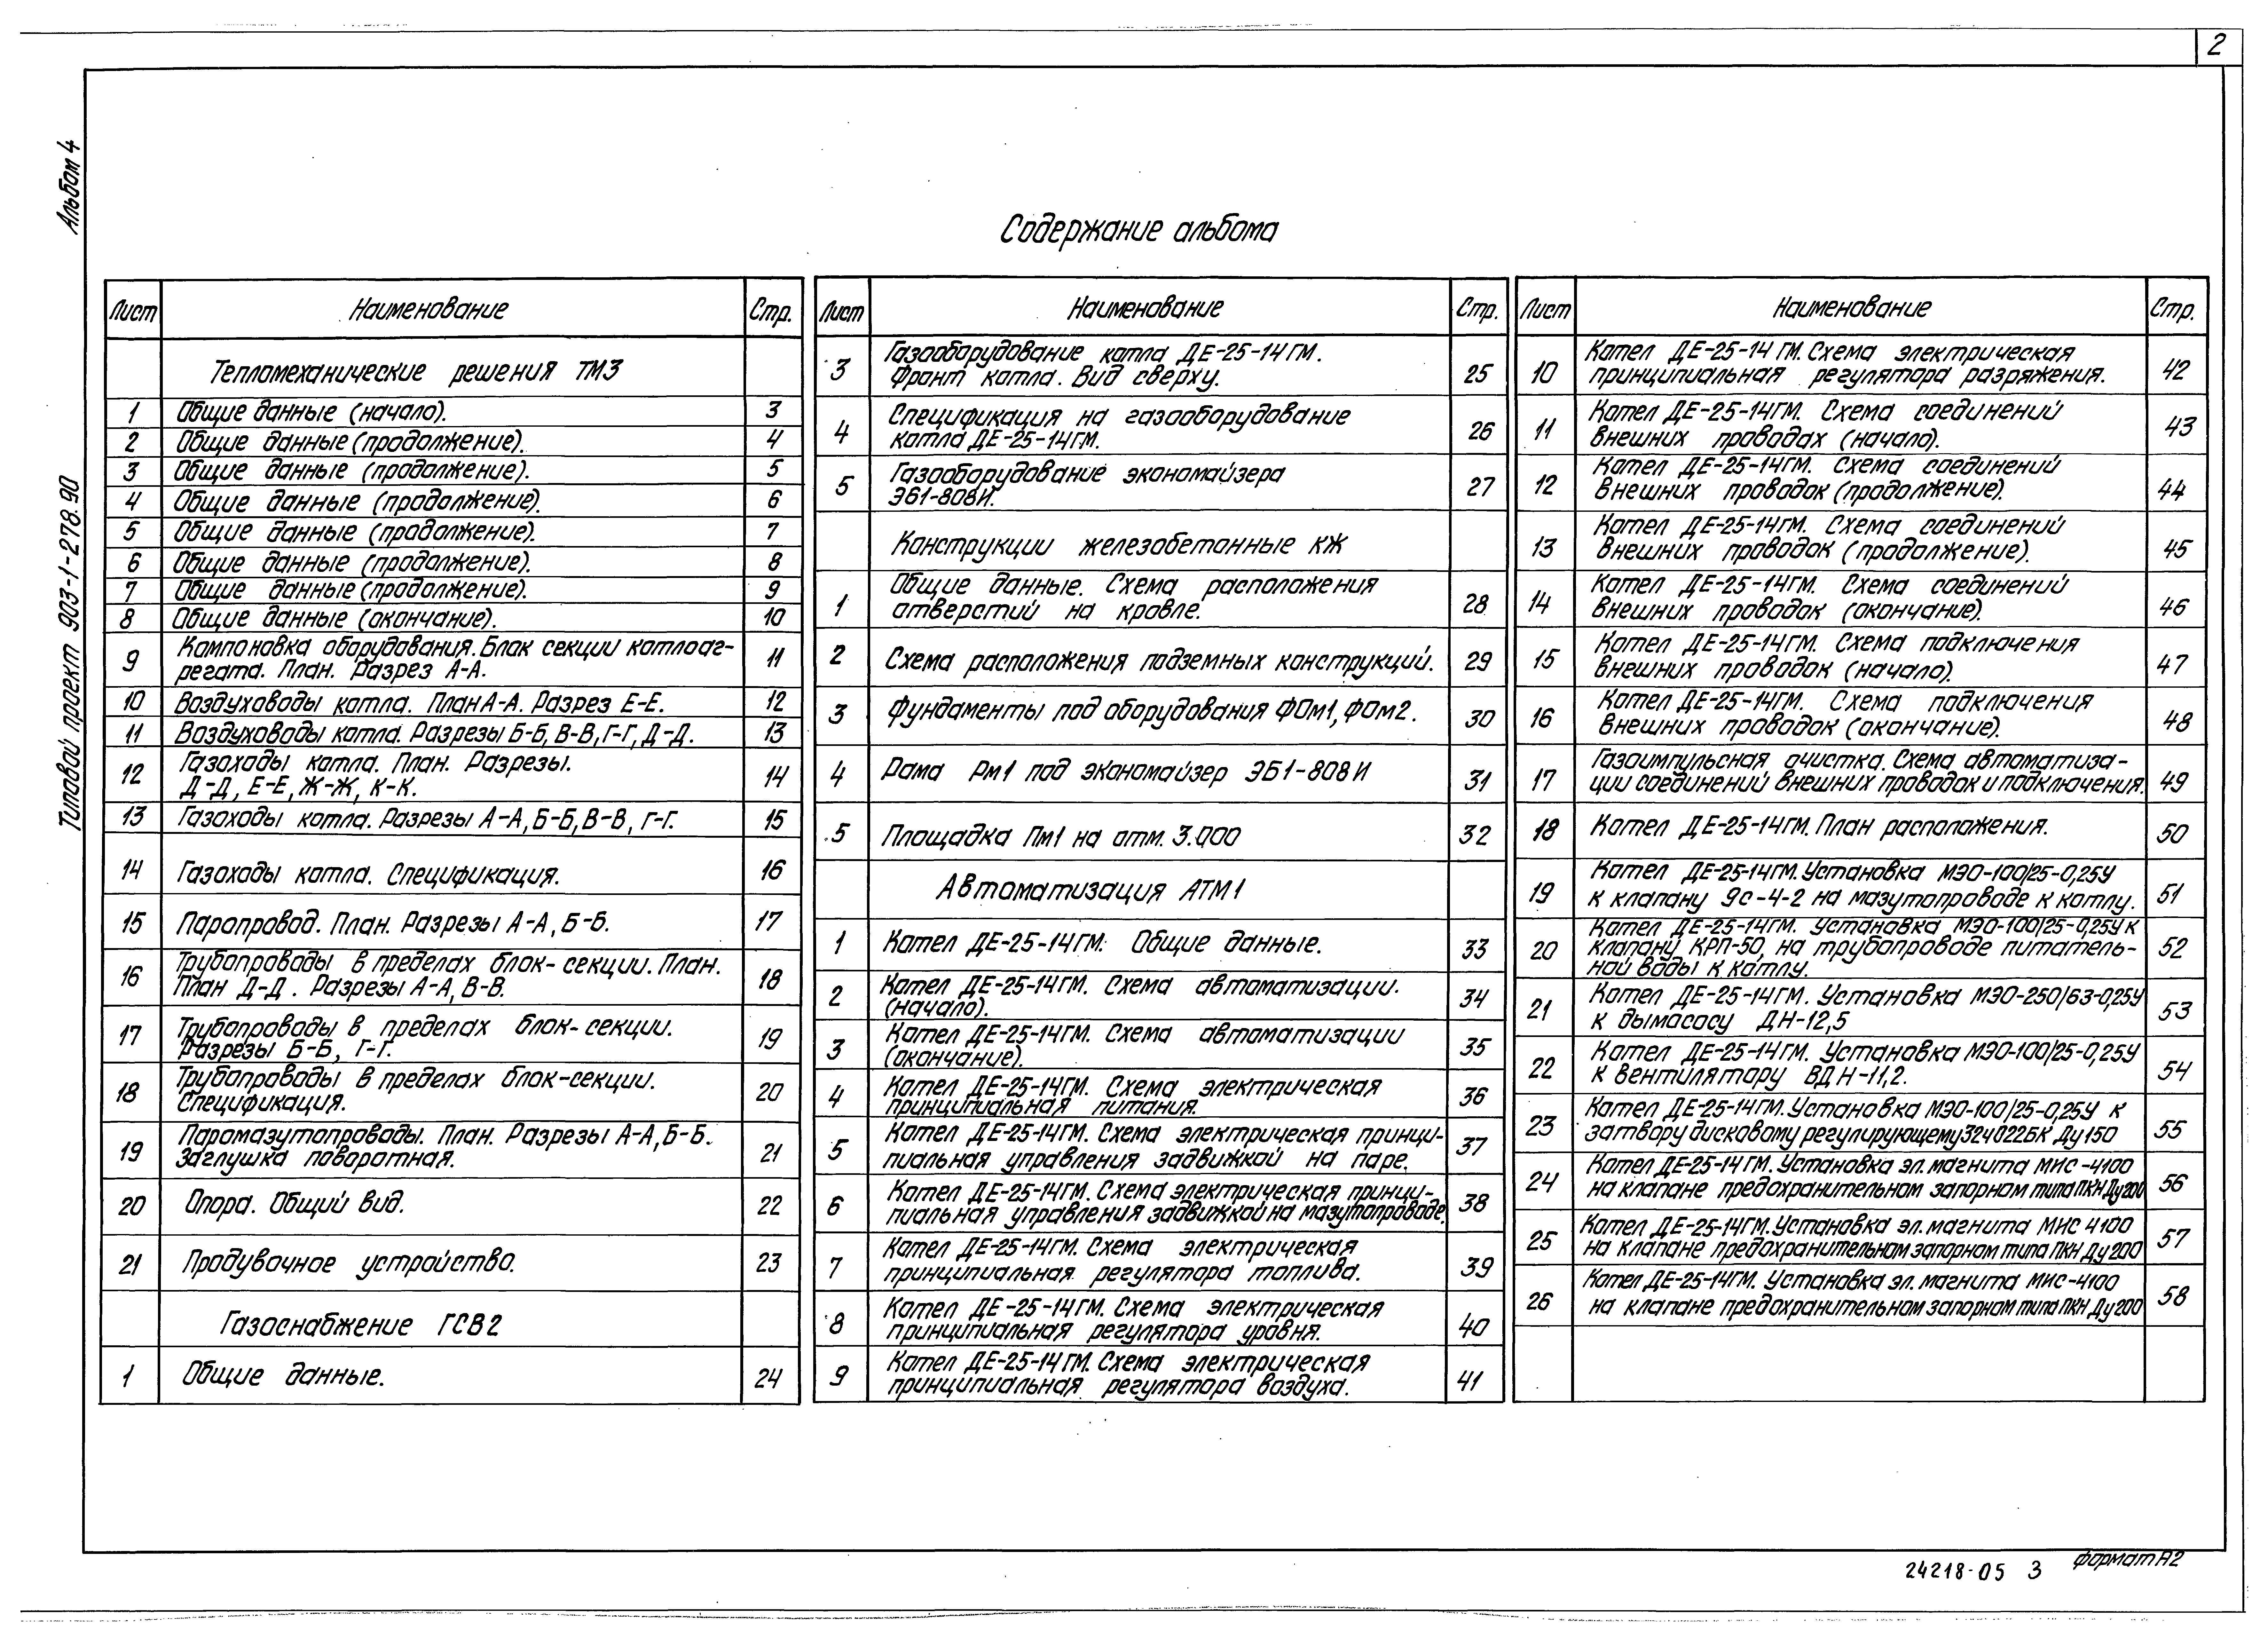 2
Альбом 4
Типовой проект 903-1-278.90
Содержание альбома
Лист Наименование Стр.
Тепломеханические решения ТМ3
1 Общие данные (начало). 3
2 Общие данные (продолжение). 4
3 Общие данные (продолжение). 5
4 Общие данные (продолжение). 6
5 Общие данные (продолжение). 7
6 Общие данные (продолжение). 8
7 Общие данные (продолжение). 9
8 Общие данные (окончание). 10
9 Компоновка оборудования. Блок секции котлоаг-
регата. План. Разрез А-А. 11
10 Воздуховоды котла. План А-А. Разрез Е-Е. 12
11 Воздуховоды котла. Разрезы Б-Б, В-В, Г-Г, Д-Д. 13
12 Газоходы котла. План. Разрезы.
Д-Д, Е-Е, Ж-Ж, К-К. 14
13 Газоходы котла. Разрезы А-А, Б-Б, В-В, Г-Г. 15
14 Газоходы котла. Спецификация. 16
15 Паропровод. План. Разрезы А-А, Б-Б. 17
16 Трубопроводы в пределах блок-секции. План.
План Д-Д. Разрезы А-А, В-В. 18
17 Трубопроводы в пределах блок-секции.
Разрезы Б-Б, Г-Г. 19
18 Трубопроводы в пределах блок-секции.
Спецификация. 20
19 Паромазутопроводы. План. Разрезы А-А, Б-Б.
Заглушка поворотная. 21
20 Опора. Общий вид. 22
21 Продувочное устройство. 23
Газоснабжение ГСВ2
1 Общие данные. 24
Лист Наименование Стр.
3 Газооборудование котла ДЕ-25-14ГМ.
Фронт котла. Вид сверху. 25
4 Спецификация на газооборудование
котла ДЕ-25-14ГМ. 26
5 Газооборудование экономайзера
Э61-808И. 27
Конструкции железобетонные КЖ
1 Общие данные. Схема расположения
отверстий на кровле. 28
2 Схема расположения подземных конструкций. 29
3 Фундаменты под оборудования ФОм1, ФОм2. 30
4 Рама Рм1 под экономайзер ЭБ1-808И 31
5 Площадка Пм1 на отм. 3.000 32
Автоматизация АТМ1
1 Котел ДЕ-25-14ГМ. Общие данные. 33
2 Котел ДЕ-25-14ГМ. Схема автоматизации.
(начало). 34
3 Котел ДЕ-25-14ГМ. Схема автоматизации
(окончание). 35
4 Котел ДЕ-25-14ГМ. Схема электрическая
принципиальная питания. 36
5 Котел ДЕ-25-14ГМ. Схема электрическая принци-
пиальная управления задвижкой на паре. 37
6 Котел ДЕ-25-14ГМ. Схема электрическая принци-
пиальная управления задвижкой на мазутопроводе. 38
7 Котел ДЕ-25-14ГМ. Схема электрическая
принципиальная регулятора топлива. 39
8 Котел ДЕ-25-14ГМ. Схема электрическая
принципиальная регулятора уровня. 40
9 Котел ДЕ-25-14ГМ. Схема электрическая
принципиальная регулятора воздуха. 41
Лист Наименование Стр.
10 Котел ДЕ-25-14 ГМ. Схема электрическая
принципиальная регулятора разряжения. 42
11 Котел ДЕ-25-14ГМ. Схема соединений
внешних проводах (начало). 43
12 Котел ДЕ-25-14ГМ. Схема соединений
внешних проводок (продолжение). 44
13 Котел ДЕ-25-14ГМ. Схема соединений
внешних проводок (продолжение). 45
14 Котел ДЕ-25-14ГМ. Схема соединений
внешних проводок (окончание). 46
15 Котел ДЕ-25-14ГМ. Схема подключения
внешних проводок (начало). 47
16 Котел ДЕ-25-14ГМ. Схема подключения
внешних проводок (окончание). 48
17 Газоимпульсная очистка. Схема автоматиза-
ции соединений внешних проводок и подключения. 49
18 Котел ДЕ-25-14ГМ. План расположения. 50
19 Котел ДЕ-25-14ГМ. Установка МЭО-100/25-0,25У
к клапану 9с-4-2 на мазутопроводе к котлу. 51
20 Котел ДЕ-25-14ГМ. Установка МЭО-100/25-0,25У к
клапану КРП-50, на трубопроводе питатель-
ной воды к котлу. 52
21 Котел ДЕ-25-14ГМ. Установка МЭО-250/63-0,25У
к дымасосу ДН-12,5 53
22 Котел ДЕ-25-14ГМ. Установка МЭО-100/25-0,25У
к вентилятору ВДН-11,2. 54
23 Котел ДЕ-25-14ГМ. Установка МЭО-100/25-0,25У к
затвору дисковому регулирующему 32ч022БК Ду150 55
24 Котел ДЕ-25-14 ГМ. Установка эл. магнита МИС-4100
на клапане предохранительном запорном типа ПКН Ду200 56
25 Котел ДЕ-25-14ГМ. Установка эл. магнита МИС 4100
на клапане предохранительном запорном типа ПКН Ду200 57
26 Котел ДЕ-25-14ГМ. Установка эл. магнита МИС-4100
на клапане предохранительном запорном типа ПКН Ду200 58
24218-05 3 формат А2